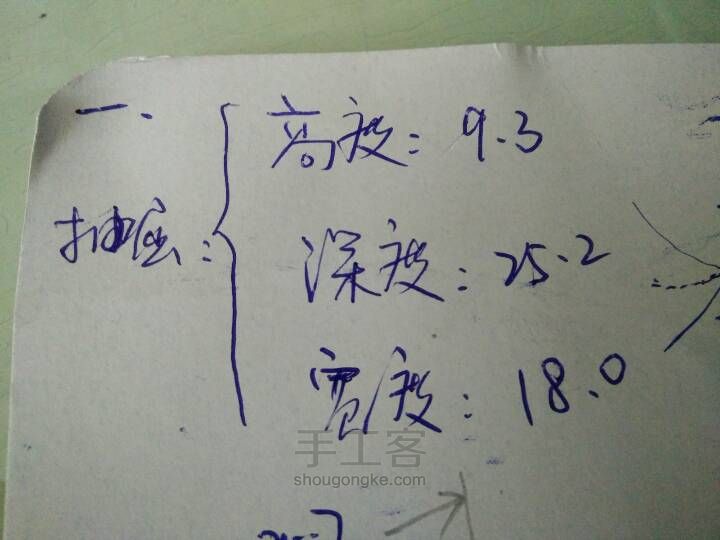 一、
高度：9.3
抽屉：
深度：25.2
宽度：18.0
手工客
shougongke.com